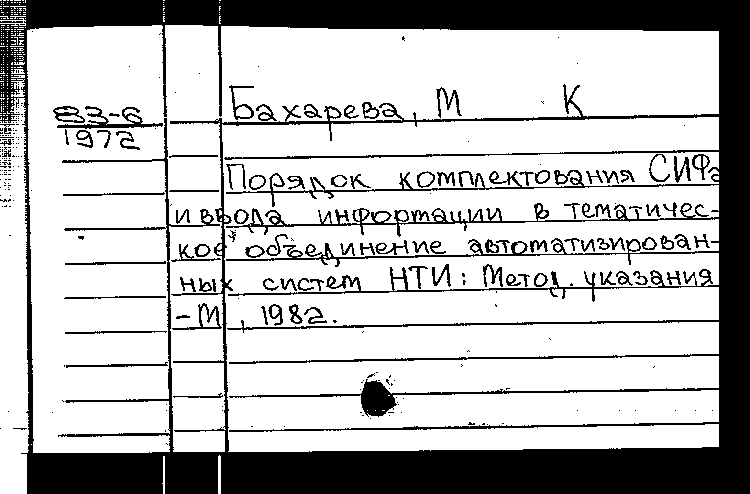 83-6
1972
Бахарева, М К
Порядок комплектования СИФа
и ввода информации в тематичес-
кое объединение автоматизирован-
ных систем НТИ: Метод. указания
-М, 1982.